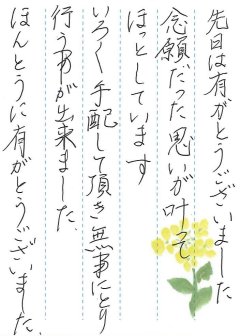 先日は有がとうございました
念願だった思いが叶って
ほっとしています
いろく手配して頂き無事にとり
行う事が出来ました、
ほんとうに有がとうございました、